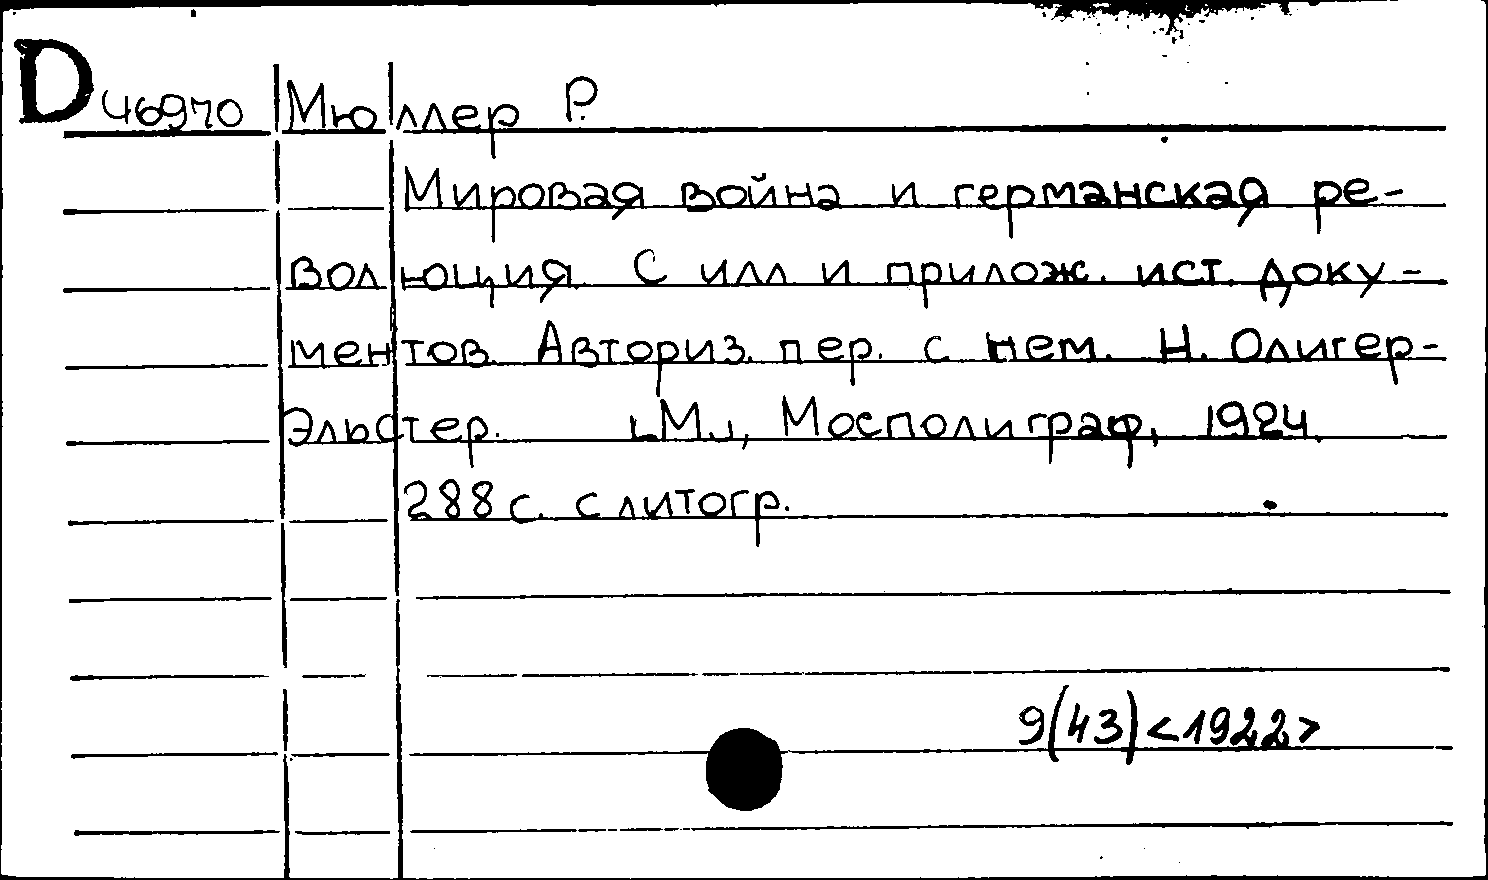 D 46970 Мюллер Р.
Мировая война и германская ре-
волюция. С илл и прилож. ист. доку-
ментов. Авториз. пер. с нем. Н. Олигер-
Эльстер. [М.], Мосполиграф, 1924.
288 с. с литогр.
9(43)<1922>